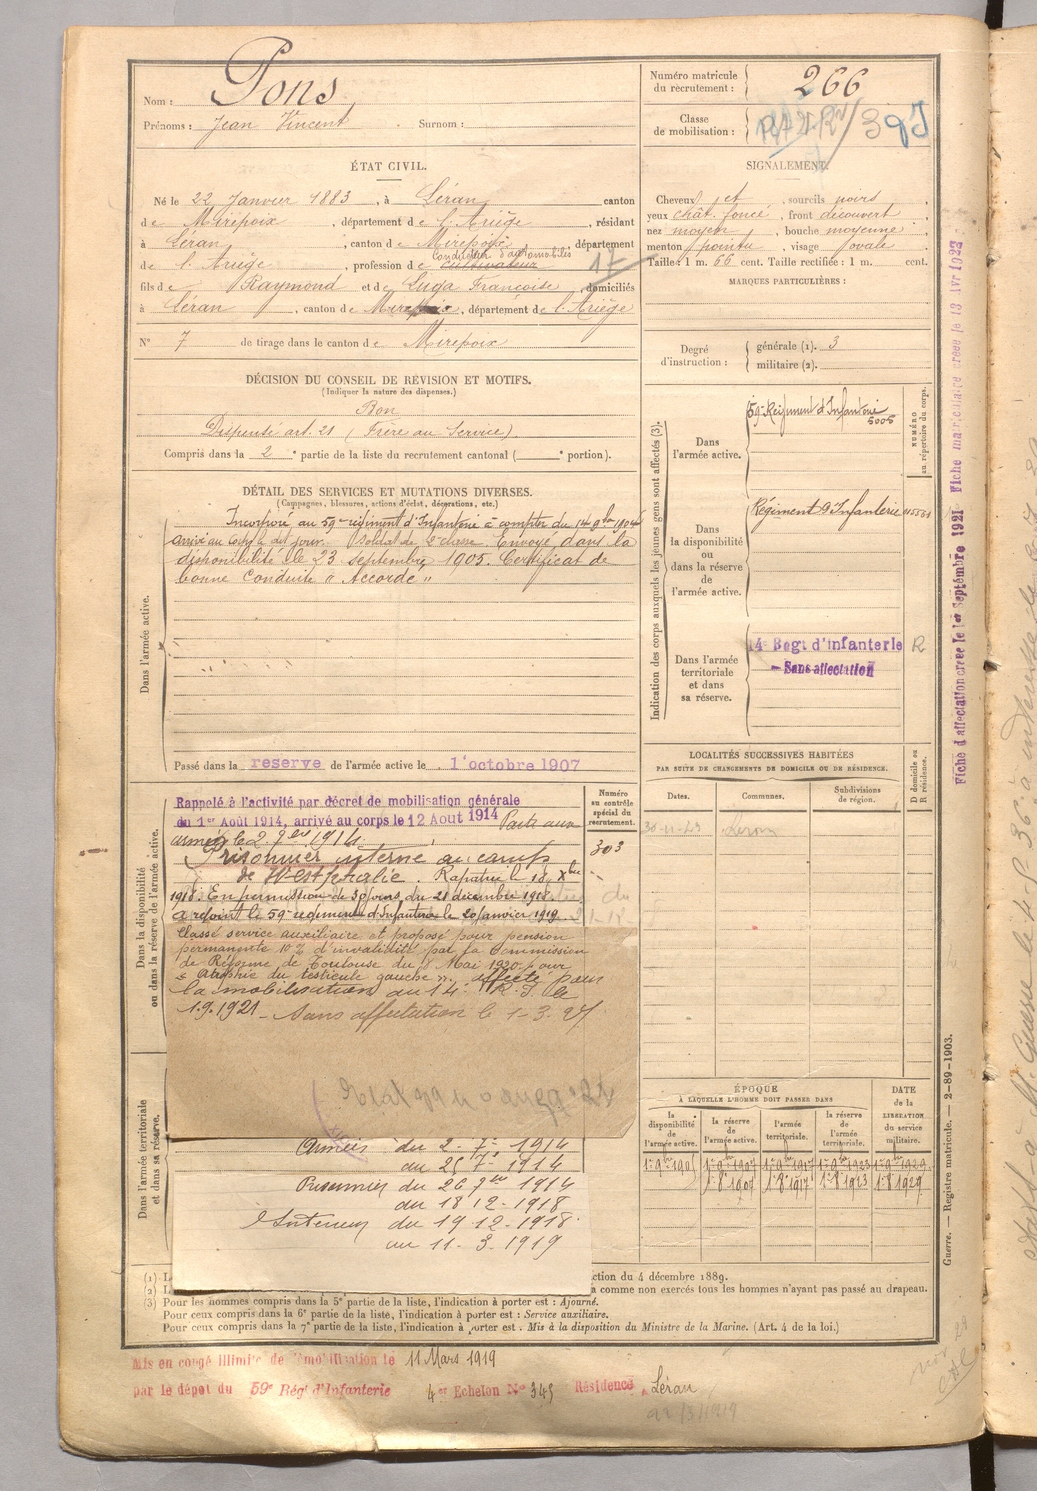 Nom : Pons
Prénoms : Jean Vincent Surnom :
Numéro matricule
du recrutement : 266
Classe
de mobilisation :
ÉTAT CIVIL.
Né le 22 Janvier 1883, à Léran canton
de Mirepoix, département de l'Ariège, résidant
à Léran, canton de Mirepoix, département
Conducteur d'automobiles
de l'Ariège, profession de cultivateur 17
fils de Raymond et de Luga Françoise, domiciliés
à Léran, canton de Mirepoix, département de l'Ariège
N° 7 de tirage dans le canton de Mirepoix
SIGNALEMENT.
Cheveux et sourcils noirs
yeux chât. foncé, front découvert
nez moyen, bouche moyenne
menton pointu, visage ovale
Taille : 1 m. 66 cent. Taille rectifiée : 1 m. cent.
MARQUES PARTICULIÈRES :
Degré
d'instruction :
générale (1). 3
militaire (2).
DÉCISION DU CONSEIL DE RÉVISION ET MOTIFS.
(Indiquer la nature des dispenses.)
Bon
Dispensé art. 21 (Frère au Service)
Compris dans la 2e partie de la liste du recrutement cantonal ( e portion).
DÉTAIL DES SERVICES ET MUTATIONS DIVERSES.
(Campagnes, blessures, actions d'éclat, décorations, etc.)
Dans l'armée active.
Incorporé au 59e régiment d'Infanterie à compter du 14 9bre 1904
arrivé au corps le dit jour. Soldat de 2e classe. Envoyé dans la
disponibilité le 23 septembre 1905. Certificat de
bonne conduite "Accordé"
Passé dans la reserve de l'armée active le 1 octobre 1907
Indication des corps auxquels les jeunes gens sont affectés (3).
NUMÉRO
au répertoire du corps.
Dans
l'armée active.
59e Régiment d'Infanterie
5005
Dans
la disponibilité
ou
dans la réserve
de
l'armée active.
Régiment d'Infanterie
Dans l'armée
territoriale
et dans
sa réserve.
14e Regt d'infanterie R
Sans affectation
Fiche d'affectation créée le 1er Septembre 1921 Fiche matriculaire créée le 13 Avr 1923
LOCALITÉS SUCCESSIVES HABITÉES
PAR SUITE DE CHANGEMENTS DE DOMICILE OU DE RÉSIDENCE.
D domicile ou
R résidence.
Dates.
Communes.
Subdivisions
de région.
Léran
Dans la disponibilité
ou dans la réserve de l'armée active.
Numéro
au contrôle
spécial du
recrutement.
303
Rappelé à l'activité par décret de mobilisation générale
du 1er Août 1914, arrivé au corps le 12 Aout 1914 Parti aux
armées le 2 7bre 1914
Prisonnier interné au camp
de Westphalie. Rapatrié le 18 Xbre
1918. En permission de 30 jours, du 21 décembre 1918.
A rejoint le 59e régiment d'Infanterie le 20 janvier 1919.
Classé service auxiliaire et proposé pour pension
permanente 10 % d'invalidité par la Commission
de Réforme de Toulouse du 8 Mai 1920 pour
"Atrophie du testicule gauche". Affecté pour
la mobilisation au 14e R. I. le
1.9.1921 - Sans affectation le 1-3-27
Dans l'armée territoriale
et dans sa réserve.
Armées du 2-7-1914
au 25 7e 1914
Prisonnier du 26 7bre 1914
au 18 12-1918
Intérieur du 19 12-1918
au 11-3-1919
ÉPOQUE
À LAQUELLE L'HOMME DOIT PASSER DANS
la
disponibilité
de
l'armée active.
la réserve
de
l'armée active.
l'armée
territoriale.
la réserve
de
l'armée
territoriale.
DATE
de la
LIBÉRATION
du service
militaire.
1er 9bre 1905 1er 9bre 1907 1er 9bre 1917 1er 9bre 1923 1er 9bre 1929
1er 8e 1907 1er 8e 1917 1er 8e 1923 1er 8e 1929
Guerre. — Registre matricule. — 2-89-1903.
(1)
ction du 4 décembre 1889.
(2)
a comme non exercés tous les hommes n'ayant pas passé au drapeau.
(3) Pour les hommes compris dans la 5e partie de la liste, l'indication à porter est : Ajourné.
Pour ceux compris dans la 6e partie de la liste, l'indication à porter est : Service auxiliaire.
Pour ceux compris dans la 7e partie de la liste, l'indication à porter est : Mis à la disposition du Ministre de la Marine. (Art. 4 de la loi.)
Mis en congé illimité de démobilisation le 11 Mars 1919
par le dépot du 59e Régt d'Infanterie 4er Echelon No 345 Résidence Léran